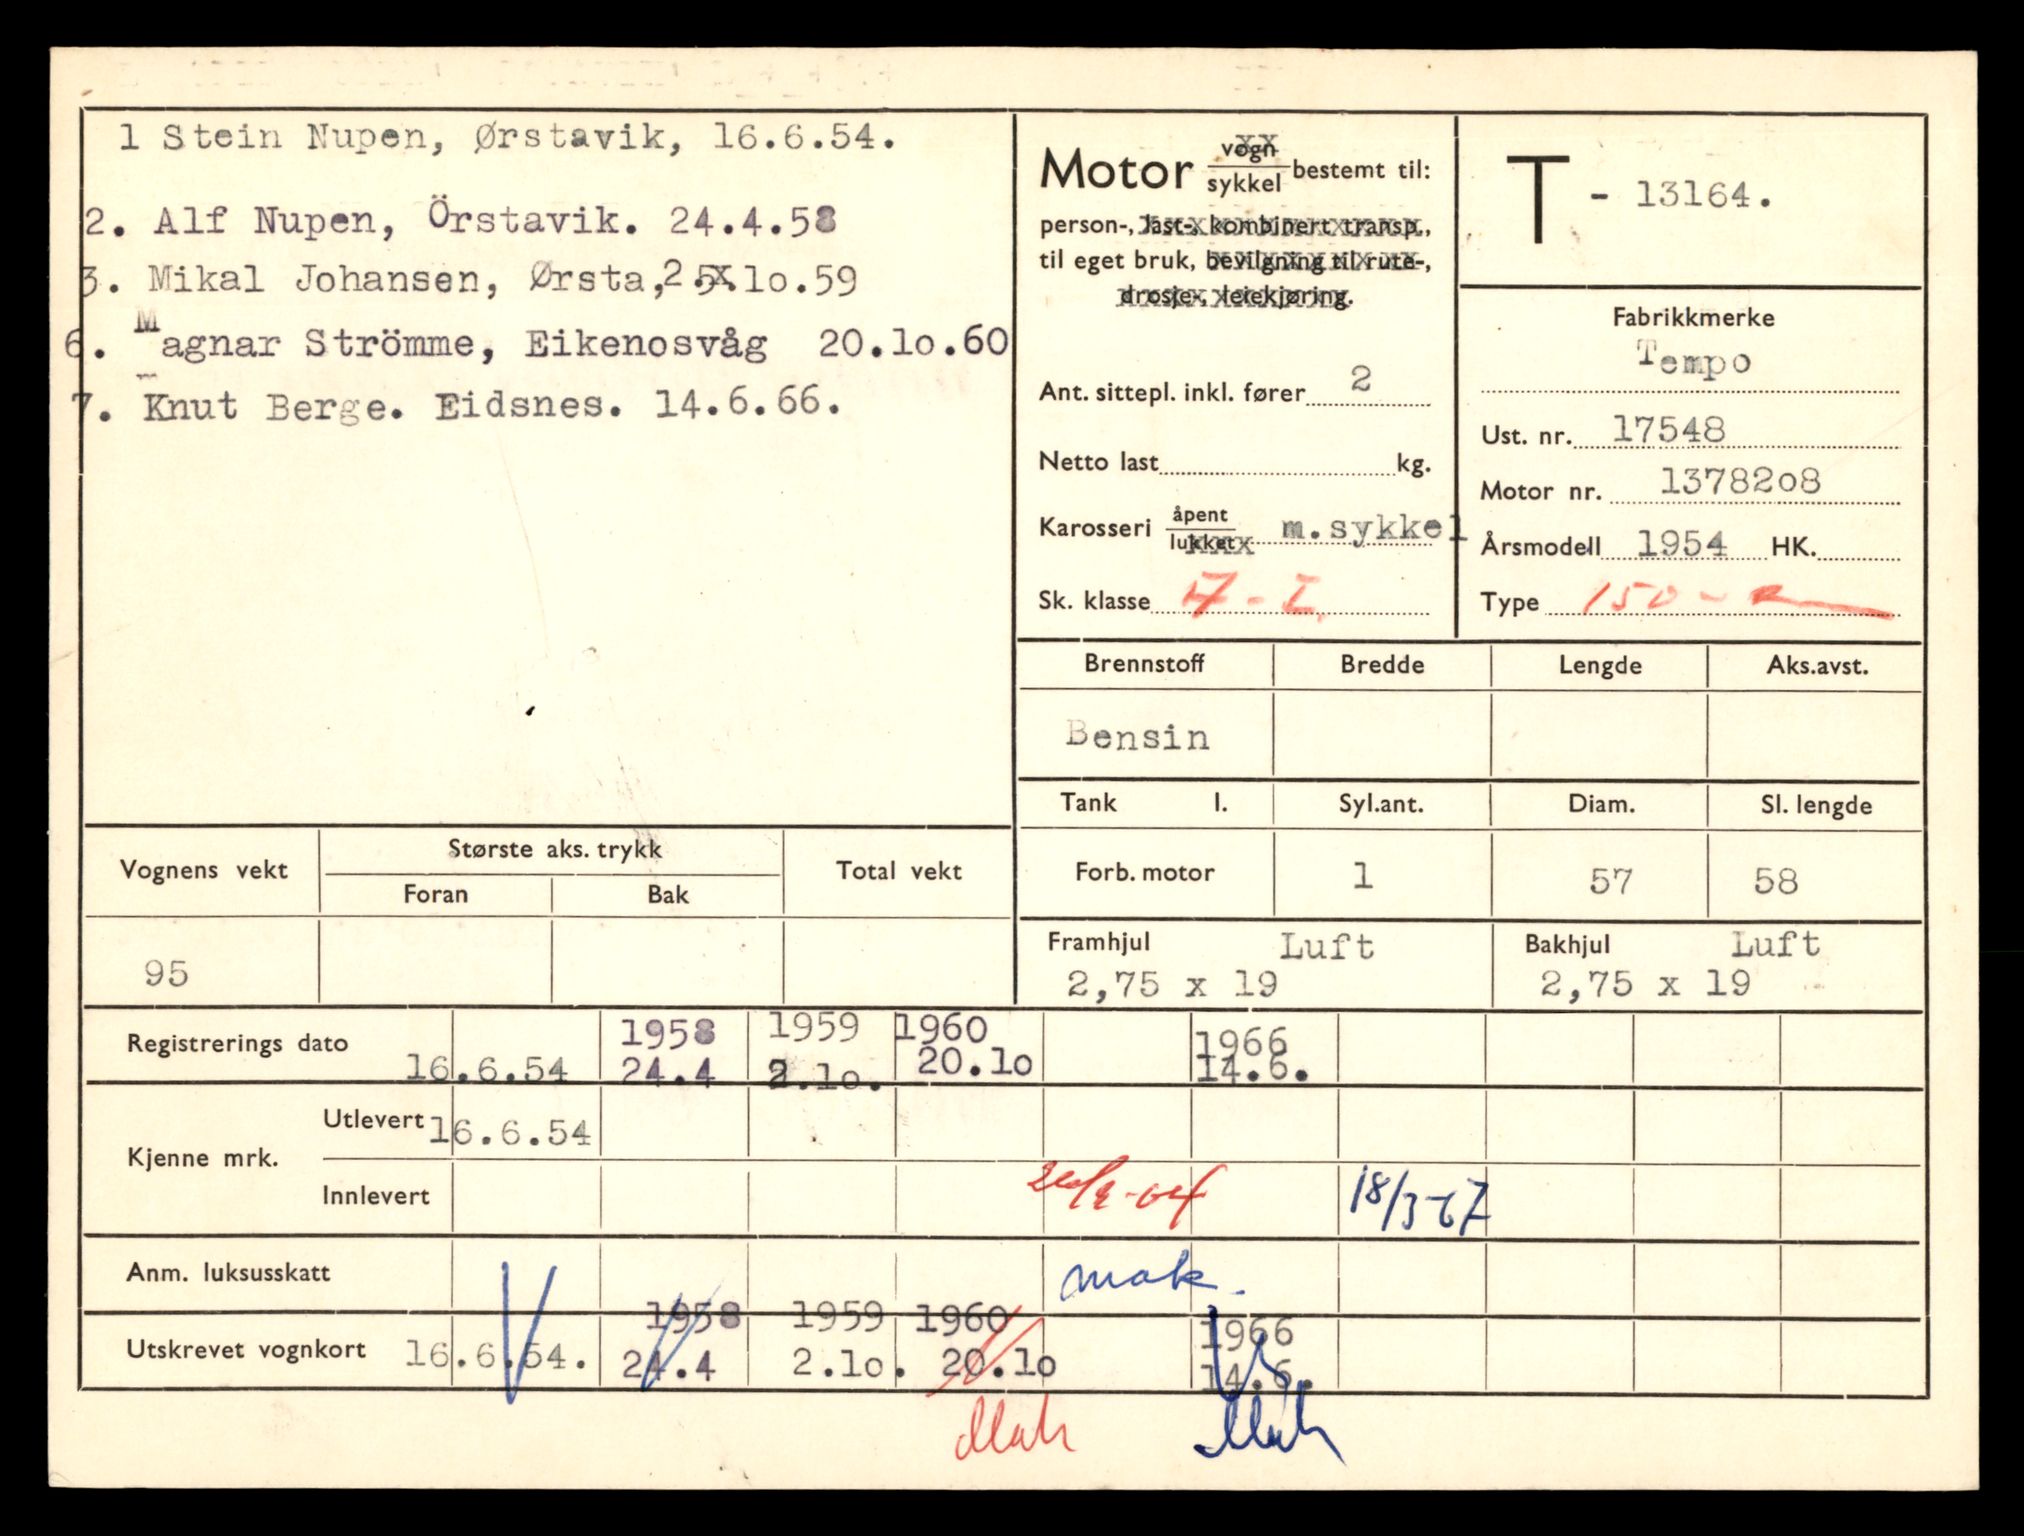 1 Stein Nupen, Ørstavik, 16.6.54.
2. Alf Nupen, Örstavik. 24.4.58
3. Mikal Johansen, Ørsta, 2.10.59
6. Magnar Strömme, Eikenosvåg 20.lo.60
7. Knut Berge. Eidsnes. 14.6.66.
Motor vogn sykkel bestemt til:
person-, last-, kombinert transp.,
til eget bruk, bevilgning til rute-,
drosje-, leiekjøring.
Ant. sittepl. inkl. fører 2
Netto last kg.
Karosseri åpent lukket m.sykkel
Sk. klasse
T - 13164.
Fabrikkmerke
Tempo
Ust. nr. 17548
Motor nr. 13782o8
Årsmodell 1954 HK.
Type 150
Brennstoff Bredde Lengde Aks.avst.
Bensin
Tank l. Syl.ant. Diam. Sl. lengde
Forb. motor 1 57 58
Framhjul Luft
2,75 x 19
Bakhjul Luft
2,75 x 19
Vognens vekt Største aks. trykk Total vekt
Foran Bak
95
Registrerings dato 16.6.54 1958 24.4 1959 2.lo. 1960 20.lo 1966 14.6.
Kjenne mrk.
Utlevert 16.6.54
Innlevert 18/3-67
Anm. luksusskatt
mak.
Utskrevet vognkort 16.6.54. 1958 24.4 1959 2.lo. 1960 20.lo 1966 14.6.